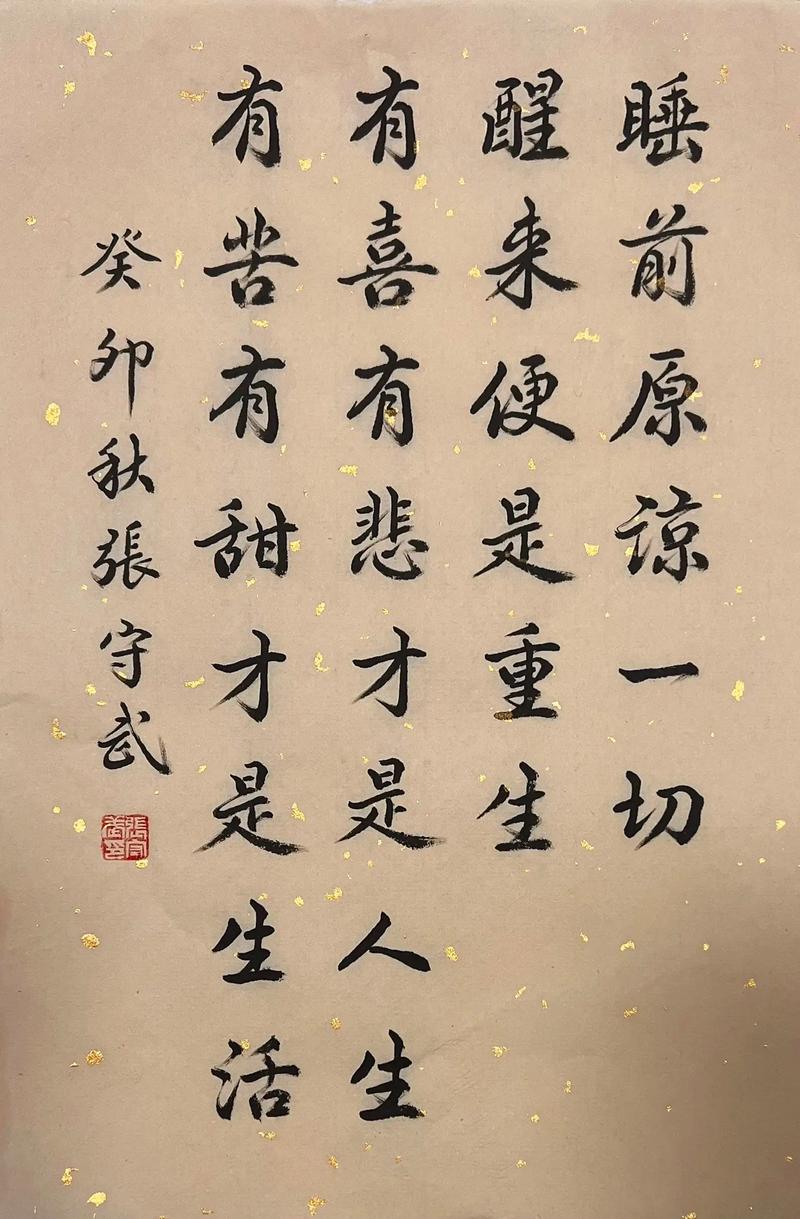 睡前原谅一切
醒来便是重生
有喜有悲才是人生
有苦有甜才是生活
癸卯秋張守武
張守武印